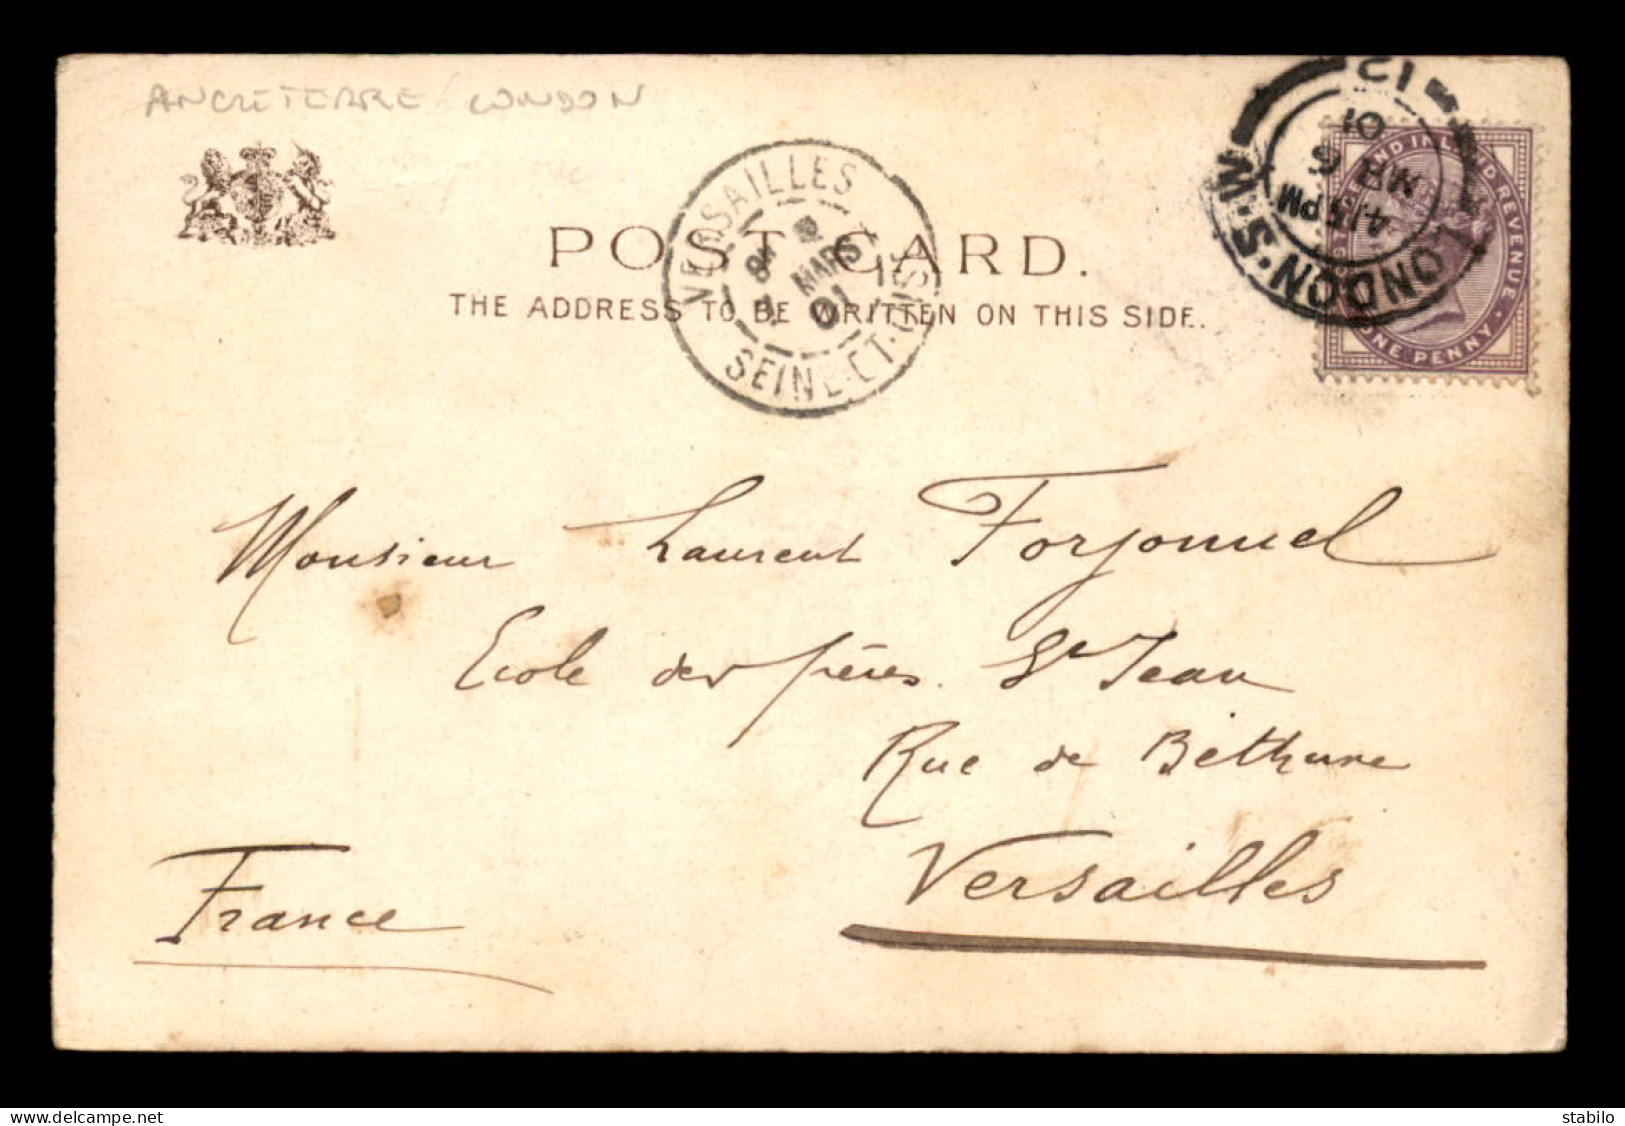 ANGLETERRE / LONDON
POST CARD.
THE ADDRESS TO BE WRITTEN ON THIS SIDE.
VERSAILLES
MARS
01
SEINE-ET-OISE
12
LONDON.S.W.
4.15 PM
MR 6
01
POSTAGE AND INLAND REVENUE
ONE PENNY
Monsieur Laurent Forjonnel
Ecole des frères St Jean
Rue de Béthune
Versailles
France
delcampe.net
stabilo